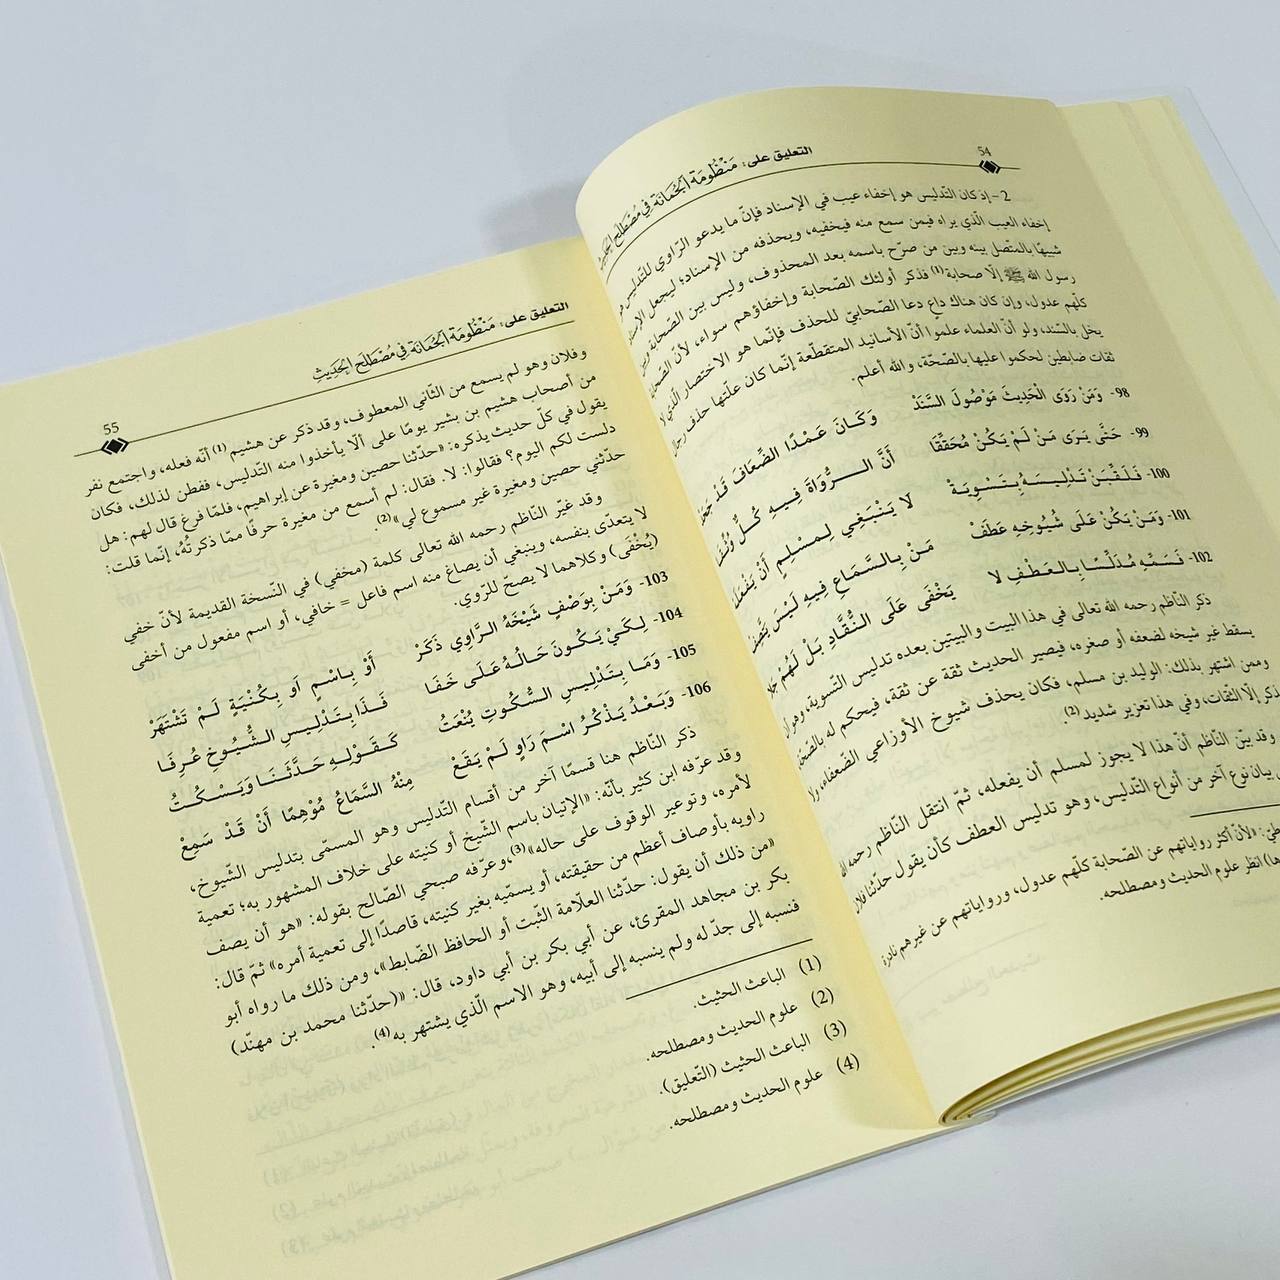 54
التعليق على: مَنْظُومَة الْجُمَانَة فِي مُصْطَلَحِ الْحَدِيثِ
2 – إذ كان التّدليس هو إخفاء عيب في الإسناد فإنّ ما يدعو الرّاوي للتّدليس هو
إخفاء العيب الّذي يراه فيمن سمع منه فيخفيه، ويحذفه من الإسناد؛ ليجعل الإسناد
شبيهًا بالمتّصل بينه وبين من صرّح باسمه بعد المحذوف، وليس بين الصّحابة وبين
رسول الله ﷺ إلّا صحابة(1) فذكر أولئك الصّحابة وإخفاؤهم سواء، لأنّ الصّحابة
كلّهم عدول، وإن كان هناك داعٍ دعا الصّحابيّ للحذف فإنّما هو الاختصار الّذي لا
يخل بالسّند، ولو أنّ العلماء علموا أنّ الأسانيد المتقطّعة إنّما كان علّتها حذف رجال
ثقات ضابطين لحكموا عليها بالصّحّة، والله أعلم.
98- وَمَنْ رَوَى الْحَدِيثَ مَوْصُولَ السَّنَدْ وَكَانَ عَمْدًا الضِّعَافَ قَدْ
99- حَتَّى يَرَى مَنْ لَمْ يَكُنْ مُحَقِّقًا أَنَّ الـرُّوَاةَ فِيهِ كُلٌّ وُثِّقَا
100- فَـلَـقِّبَنْ تَـدْلِيسَـهُ بِـتَـسْـوِيَـةْ لَا يَـنْـبَـغِي لِـمُسْلِمٍ أَنْ
101- وَمَنْ يَكُنْ عَلَى شُيُوخِهِ عَطَفْ مَنْ بِالسَّمَاعِ فِيهِ لَيْسَ يَتَّصِفْ
102- فَـسَـمِّهِ مُدَلِّسًا بِـالعَـطْفِ لَا يَخْفَى عَلَى النُّقَّادِ بَلْ لَهُمْ جَلَا
ذكر النّاظم رحمه الله تعالى في هذا البيت والبيتين بعده تدليس التّسوية، وهو أن
يسقط غير شيخه لضعفه أو صغره، فيصير الحديث ثقة عن ثقة، فيحكم له بالصّحّة
وممن اشتهر بذلك: الوليد بن مسلم، فكان يحذف شيوخ الأوزاعي الضّعفاء، ولا
ذكر إلّا الثّقات، وفي هذا تعزير شديد(2).
وقد بيّن النّاظم أنّ هذا لا يجوز لمسلم أن يفعله، ثمّ انتقل النّاظم رحمه الله
بيان نوع آخر من أنواع التّدليس، وهو تدليس العطف كأن يقول حدّثنا فلان
«لأنّ أكثر رواياتهم عن الصّحابة كلّهم عدول، ورواياتهم عن غيرهم نادرة
انظر علوم الحديث ومصطلحه.
التعليق على: مَنْظُومَة الْجُمَانَة فِي مُصْطَلَحِ الْحَدِيثِ
55
وفلان وهو لم يسمع من الثّاني المعطوف، وقد ذكر عن هشيم(1) أنّه فعله، واجتمع نفر
من أصحاب هشيم بن بشير يومًا على ألّا يأخذوا منه التّدليس، ففطن لذلك، فكان
يقول في كلّ حديث يذكره: «حدّثنا حصين ومغيرة عن إبراهيم، فلمّا فرغ قال لهم: هل
دلست لكم اليوم؟ فقالوا: لا. فقال: لم أسمع من مغيرة حرفًا ممّا ذكرتُهُ، إنّما قلت:
حدّثني حصين ومغيرة غير مسموع لي»(2).
وقد غيّر النّاظم رحمه الله تعالى كلمة (مخفي) في النّسخة القديمة لأنّ خفي
لا يتعدّى بنفسه، وينبغي أن يصاغ منه اسم فاعل = خافي، أو اسم مفعول من أخفى
(يُخْفَى) وكلاهما لا يصحّ للرّوي.
103- وَمَنْ بِوَصْفٍ شَيْخَهُ الرَّاوِي ذَكَرْ أَوْ بِاسْمٍ اَوْ بِكُنْيَةٍ لَمْ تَشْتَهِرْ
104- لِـكَيْ يَـكُونَ حَالُـهُ عَـلَـى خَفَا فَـذَا بِتَدْلِيسِ الشُّيُوخِ عُرِفَا
105- وَمَـا بِـتَدْلِيسِ السُّكُوتِ يُنْعَتُ كَـقَوْلِهِ حَدَّثَـنَا وَيَسْكُـتُ
106- وَبَعْـدُ يَذْكُرُ اسْمَ رَاوٍ لَمْ يَقَعْ مِنْهُ السَّمَاعُ مُوْهِمًا أَنْ قَدْ سَمِعْ
ذكر النّاظم هنا قسمًا آخر من أقسام التّدليس وهو المسمّى بتدليس الشّيوخ،
وقد عرّفه ابن كثير بأنّه: «الإتيان باسم الشّيخ أو كنيته على خلاف المشهور به؛ تعمية
لأمره، وتوعير الوقوف على حاله»(3)، وعرّفه صبحي الصّالح بقوله: «هو أن يصف
راويه بأوصاف أعظم من حقيقته، أو يسمّيه بغير كنيته، قاصدًا إلى تعمية أمره» ثمّ قال:
«من ذلك أن يقول: حدّثنا العلّامة الثّبت أو الحافظ الضّابط»، ومن ذلك ما رواه أبو
بكر بن مجاهد المقرئ، عن أبي بكر بن أبي داود، قال: «(حدّثنا محمد بن مهنّد)
فنسبه إلى جدّ له ولم ينسبه إلى أبيه، وهو الاسم الّذي يشتهر به(4).
(1) الباعث الحثيث.
(2) علوم الحديث ومصطلحه.
(3) الباعث الحثيث (التّعليق).
(4) علوم الحديث ومصطلحه.